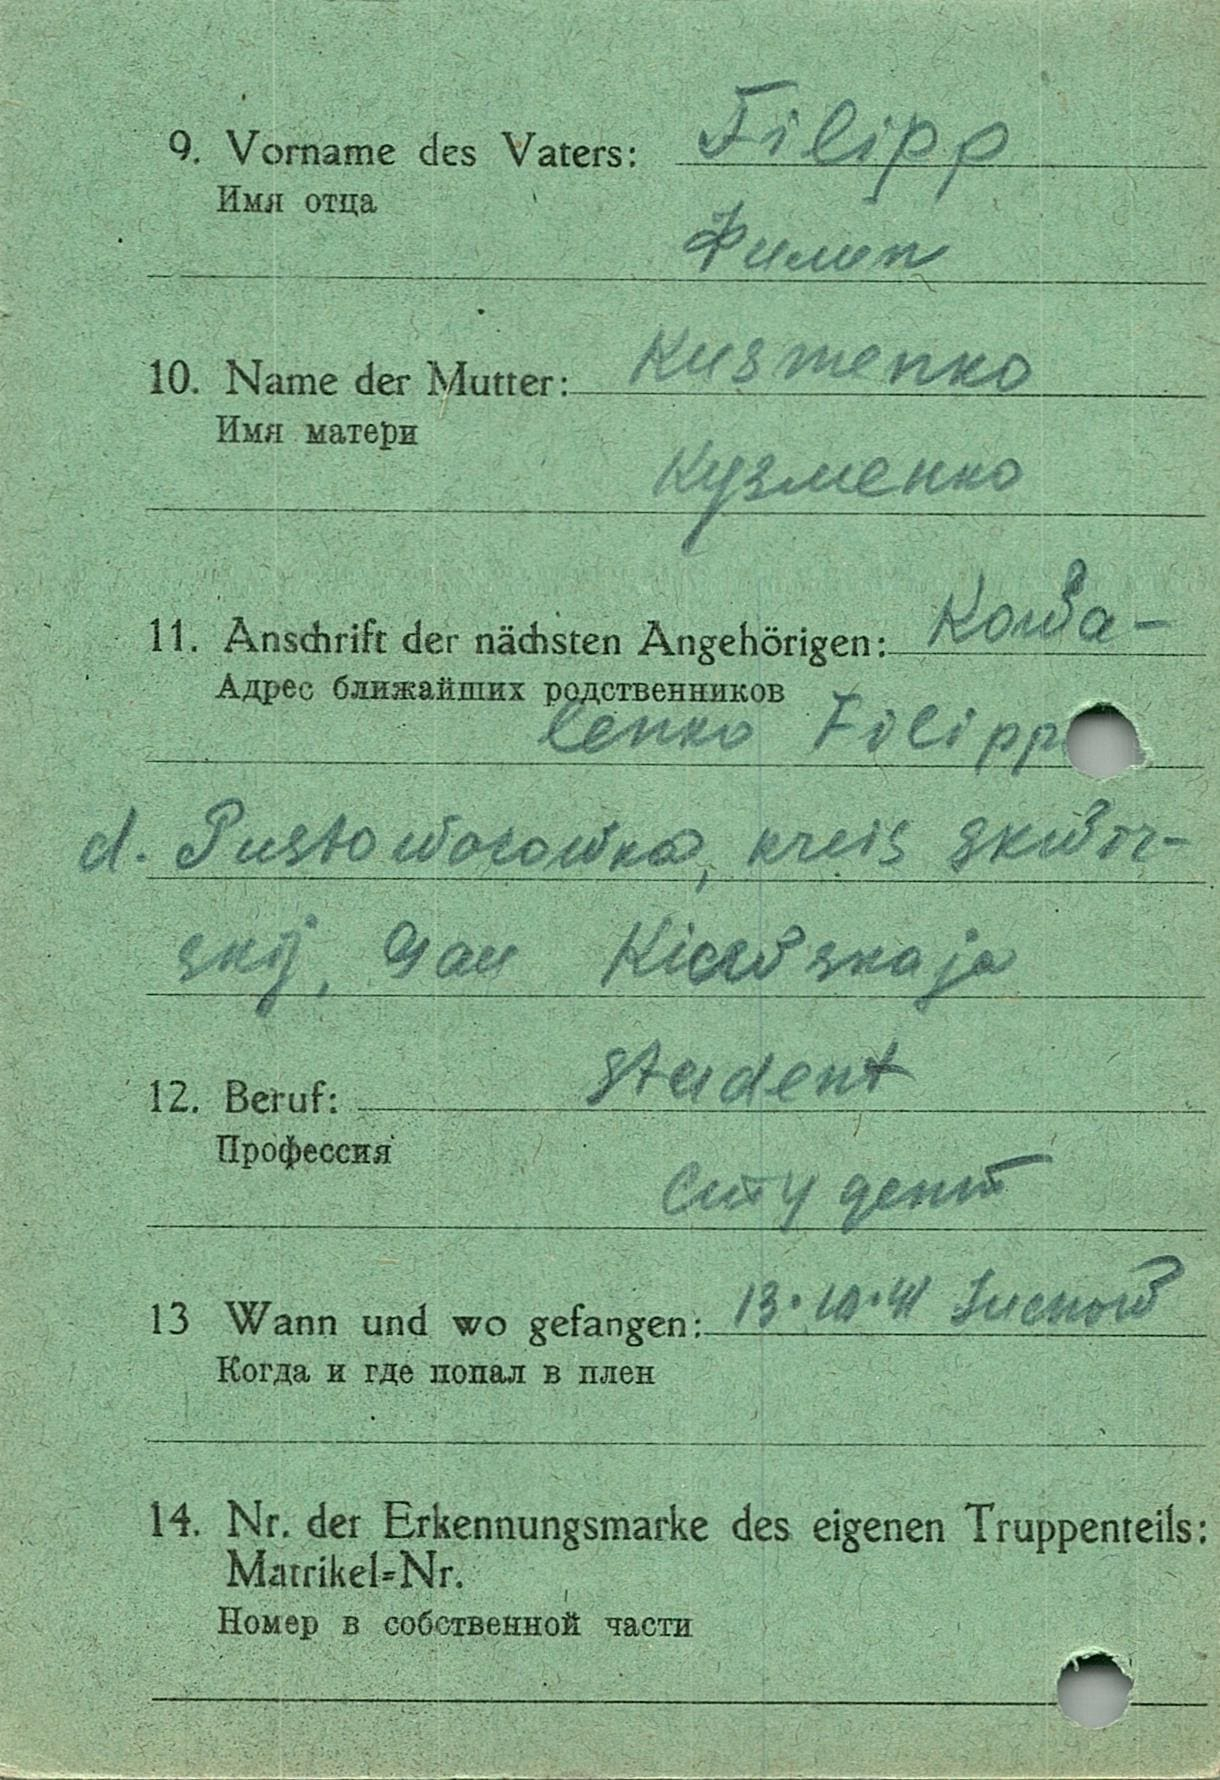 9. Vorname des Vaters: Filipp
Имя отца
Филип
10. Name der Mutter: Kusmenko
Имя матери
Кузменко
11. Anschrift der nächsten Angehörigen: Kowa-
Адрес ближайших родственников
lenko Filipp
d. Pustowarowka, kreis skwir-
skij, Gau Kiewskaja
12. Beruf: student
Профессия
Студент
13 Wann und wo gefangen: 13.10.41
Когда и где попал в плен
14. Nr. der Erkennungsmarke des eigenen Truppenteils:
Matrikel-Nr.
Номер в собственной части